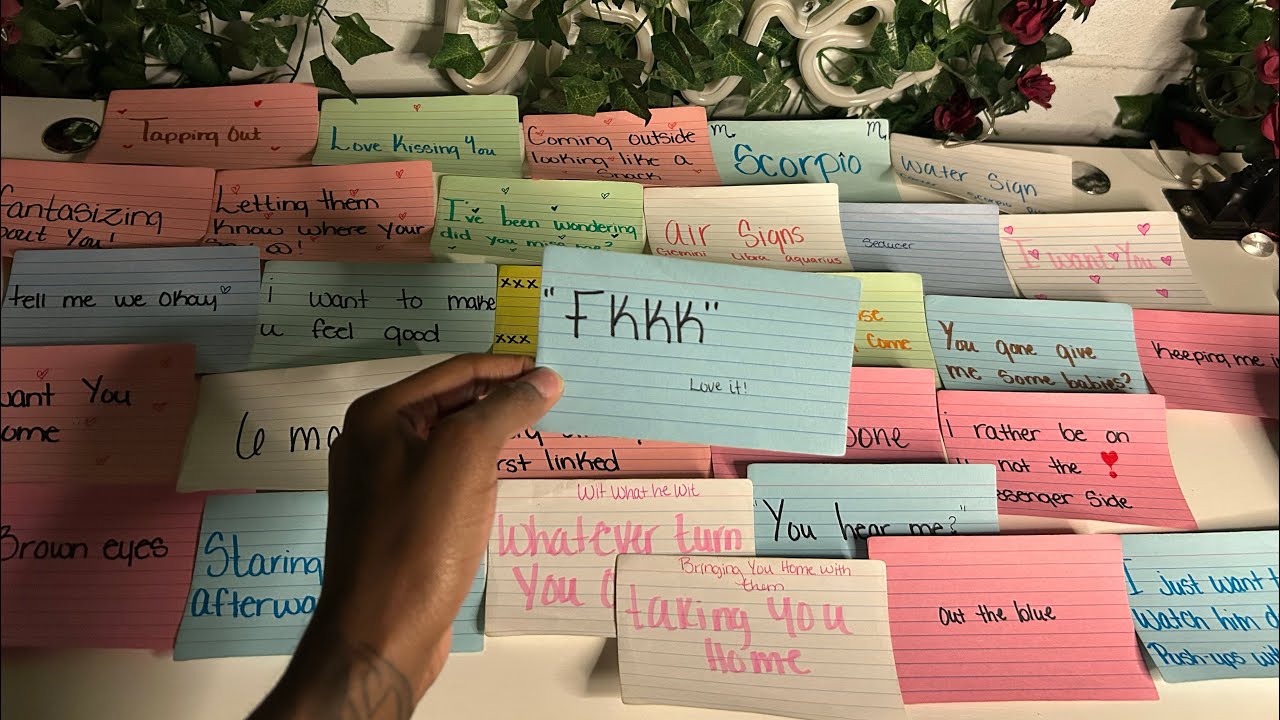 Tapping Out
Love Kissing You
Coming outside
looking like a
Snack
m m
Scorpio
Water Sign
fantasizing
bout You!
Letting them
Know where your
I've been wondering
did you miss me?
air Signs
Gemini Libra aquarius
Seducer
I want You
tell me we okay
i want to make
u feel good
xxx
xxx
"FKKK"
Love it!
come
You gone give
me some babies?
Keeping me i
want You
ome
6 mo
rst linked
one
i rather be on
not the
ssenger Side
Brown eyes
Staring
afterwa
Wit what he wit
Whatever turn
You
"You hear me?"
Bringing You Home with
them
taking you
Home
out the blue
I just want t
watch him d
Push-ups wit